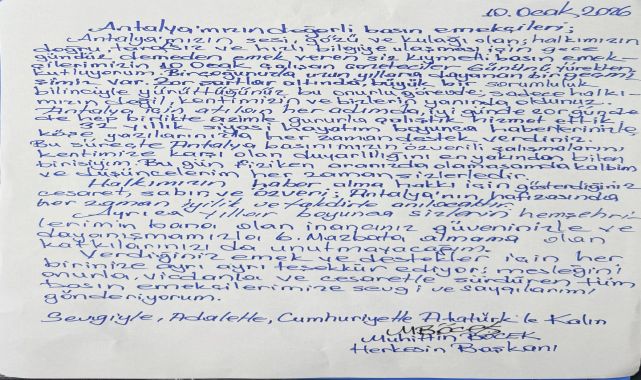 10. Ocak, 2026
Antalya'mızın değerli basın emekçileri;
Antalya'mızın sesi gözü ve kulağı olan; halkımızın
doğru, tarafsız ve hızlı bilgiye ulaşması için, gece
gündüz demeden emek veren siz kıymetli basın emek-
çilerimizin 10 Ocak çalışan gazeteciler gününü yürekten
kutluyorum. Birçoğunuzla uzun yıllara dayanan bir geçmi-
şimiz var. Zor şartlar altında, büyük bir sorumluluk
bilinciyle yürüttüğünüz bu onurlu görevde; sadece halkı-
mızın değil, kentimizin ve bizlerin yanında oldunuz.
Antalya için atılan her adımda, iyi günde zor günde
de hep birlikte azimle gururla çalıştık hizmet ettik
27 yıllık siyasi hayatım boyunca haberlerinizle
köşe yazılarınızla her zaman destek verdiniz.
Bu süreçte Antalya basınımızın özverili çalışmalarını
kentimize karşı olan duyarlılığını en yakından bilen
birisiyim. Bu gün fiziken aranızda olamasamda kalbim
ve düşüncelerim her zaman sizlerledir.
Halkımızın haber alma hakkı için gösterdiğiniz
cesaret, sabır ve özveri; Antalya'nın hafızasında
her zaman iyilik ve takdirle anılacaktır.
Ayrıca yıllar boyunca sizlerin hemşehri-
lerimin bana olan inancınız güveninizle ve
dayanışmamızla 6. Mazbata almama olan
katkılarınızı da unutmayacağım.
Verdiğiniz emek ve destekler için her
birinize ayrı ayrı teşekkür ediyor; mesleğini
onurla vicdanla ve cesaretle sürdüren tüm
basın emekçilerimize sevgi ve saygılarımı
gönderiyorum.
Sevgiyle, Adaletle, Cumhuriyetle Atatürk'le Kalın
M.BÖCEK
Muhittin BÖCEK
Herkesin Başkanı